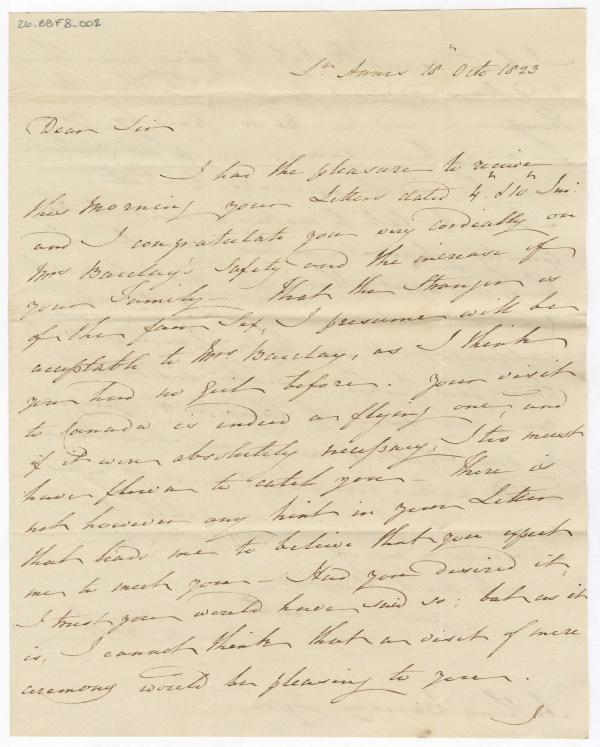 26-BBF8-002
St Anns 18th Octo 1823
Dear Sir
I had the pleasure to receive
this Morning your Letters dated 4th &
and I congratulate you very cordially on
Mrs Barclay's Safety, and the increase of
your Family - That the Stranger is
of the fair Sex, I presume will be
acceptable to Mrs Barclay, as I think
you had no Girl before. Your visit
to Canada is indeed a flying one, and
if it were absolutely necessary, I too must
have flown to catch you - There is
not however any hint in your Letter
that leads me to believe that you expect
me to meet you - Had you desired it,
I trust you would have said so; but as it
is, I cannot think that a visit of mere
ceremony would be pleasing to you.
I